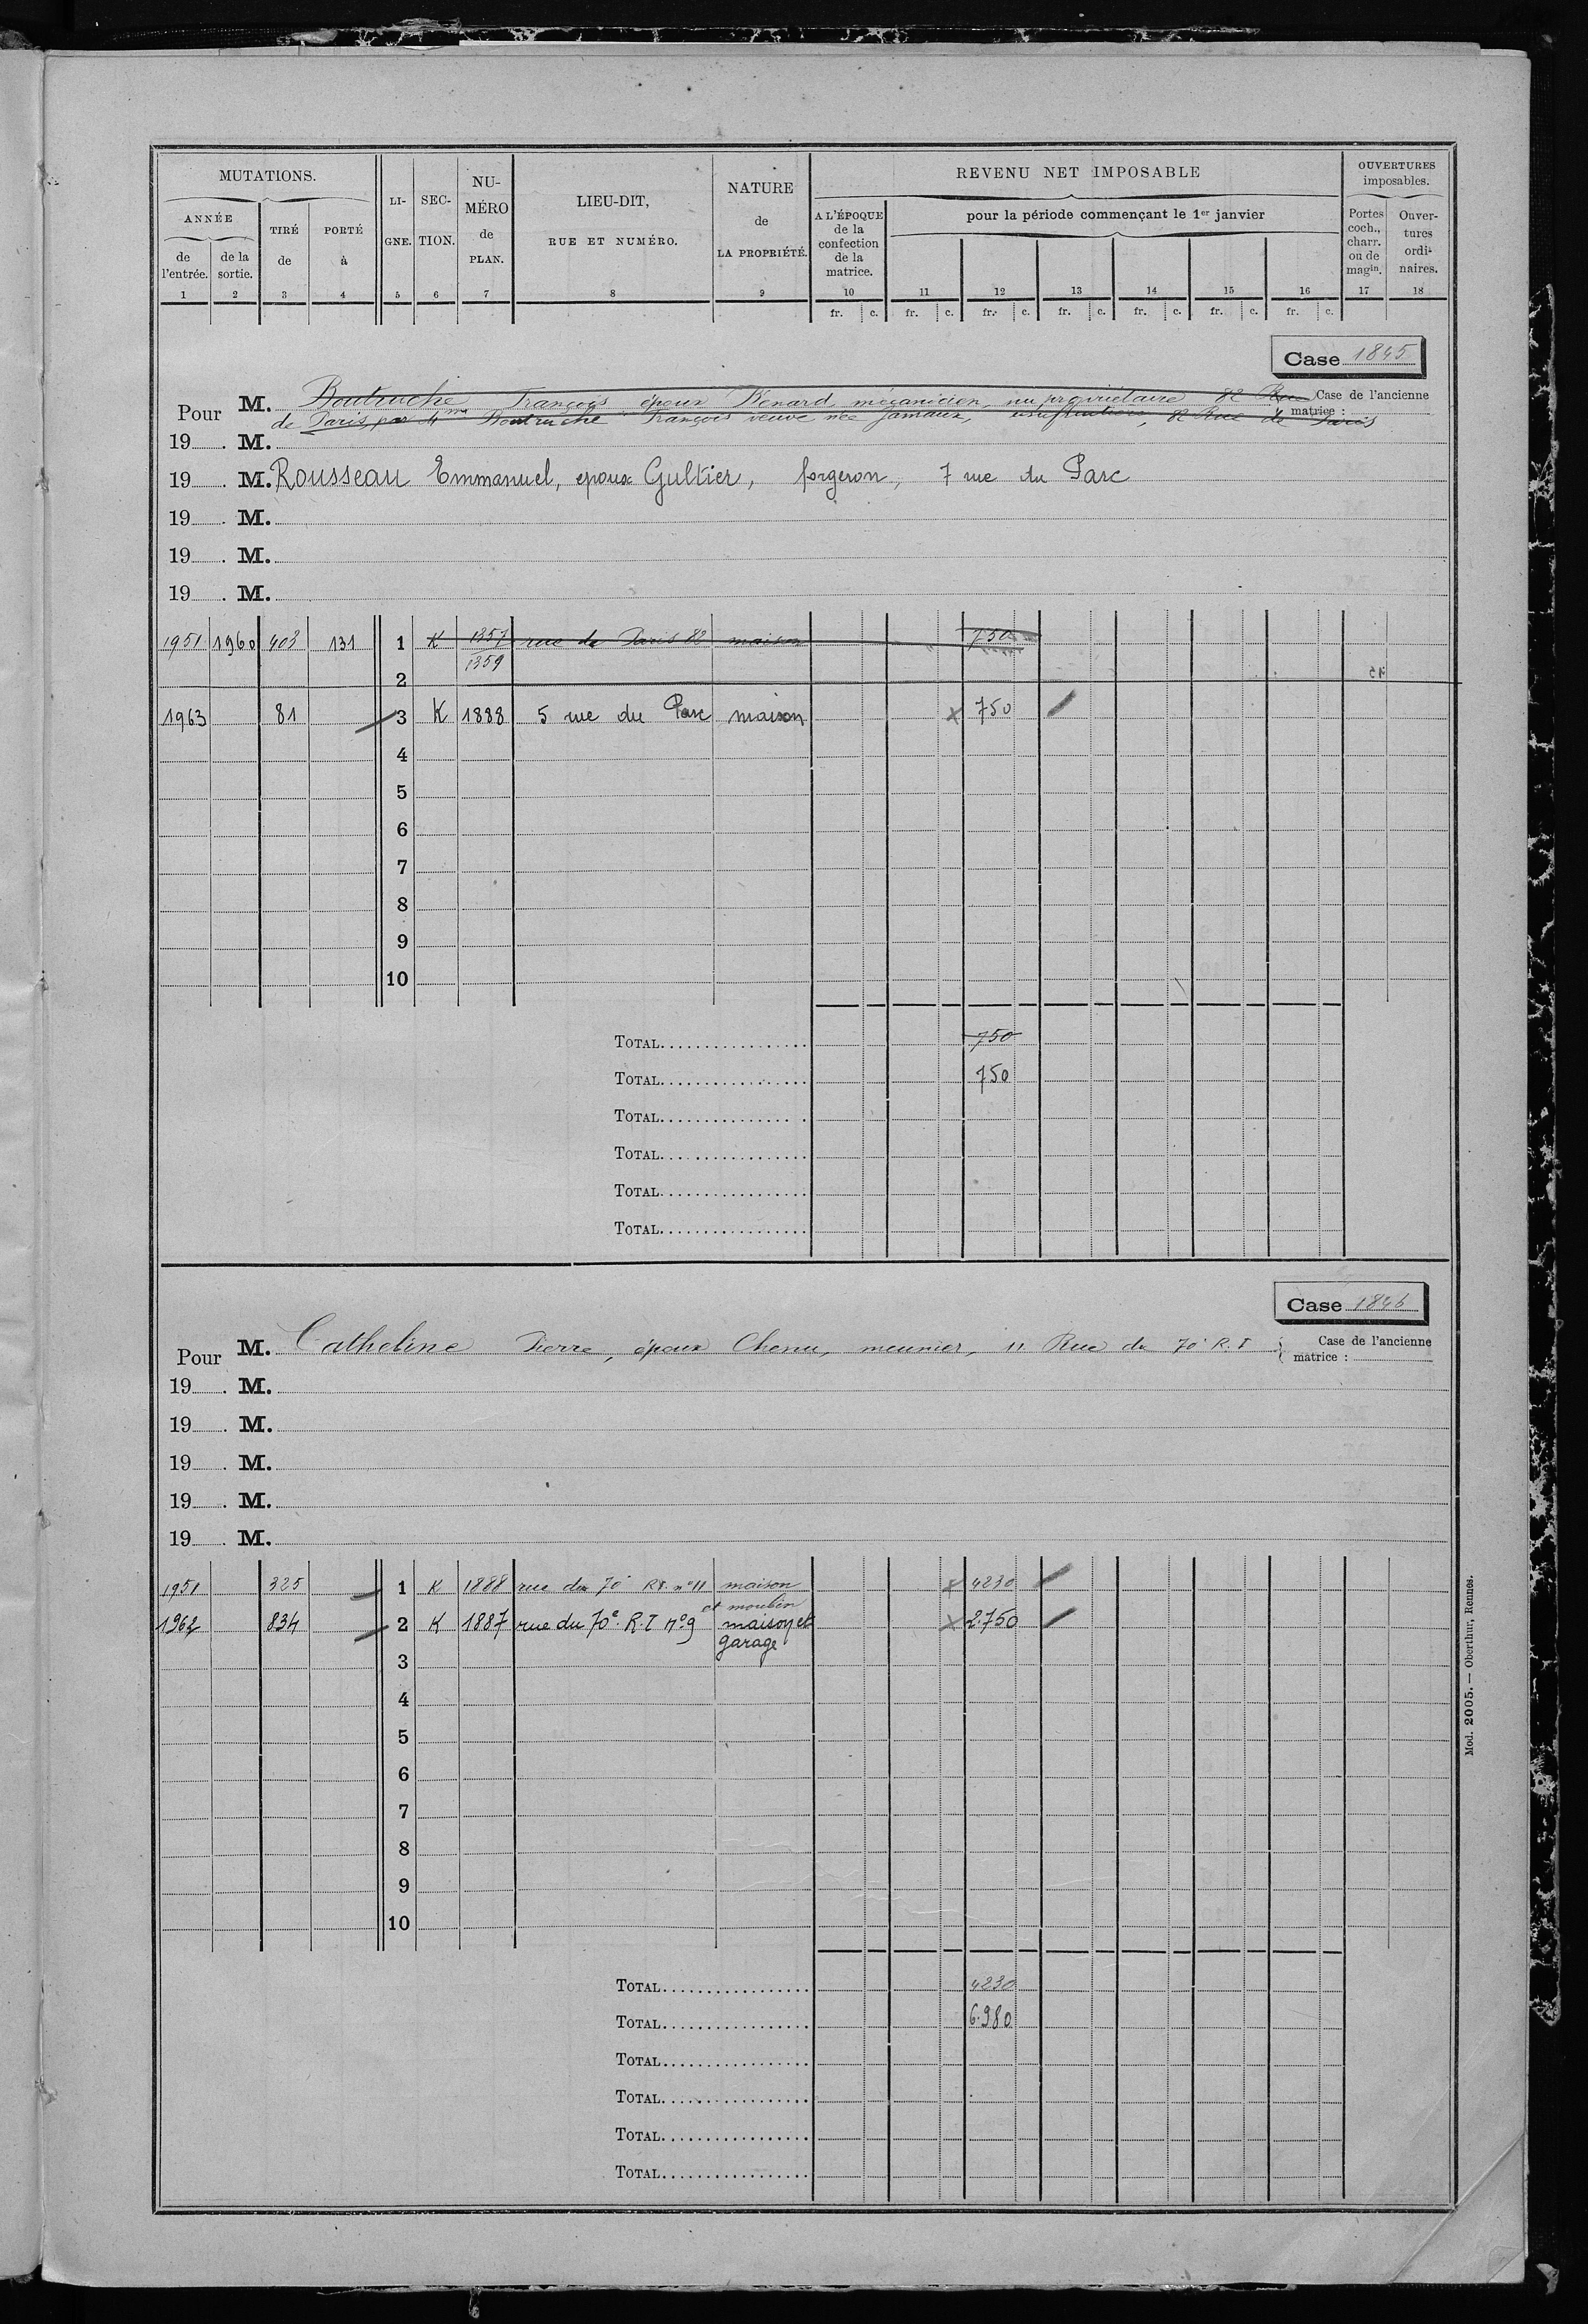 MUTATIONS.
ANNÉE
de l'entrée.
de la sortie.
TIRÉ de
PORTÉ à
LI-GNE.
SEC-TION.
NU-MÉRO de PLAN.
LIEU-DIT,
RUE ET NUMÉRO.
NATURE
de
LA PROPRIÉTÉ.
REVENU NET IMPOSABLE
A L'ÉPOQUE de la confection de la matrice.
pour la période commençant le 1er janvier
OUVERTURES imposables.
Portes coch., charr. ou de magin.
Ouver-tures ordi-naires.
1 2 3 4 5 6 7 8 9 10 11 12 13 14 15 16 17 18
fr. c. fr. c. fr. c. fr. c. fr. c. fr. c. fr. c.
Case 1845
Pour M. Boutruche François époux Renard mécanicien, nu propriétaire 82 Rue
Case de l'ancienne matrice :
de Paris par Mme Boutruche François veuve née Jamaux, usufruitière, 82 Rue de Paris
19 . M.
19 . M. Rousseau Emmanuel, epoux Gultier, forgeron, 7 rue du Parc
19 . M.
19 . M.
19 . M.
1951 1960 403 131 1 K 1357 rue de Paris 82 maison 750
1359
2
1963 81 3 K 1888 5 rue du Parc maison x 750
4
5
6
7
8
9
10
TOTAL................. 750
TOTAL................. 750
TOTAL.................
TOTAL.................
TOTAL.................
TOTAL.................
Case 1846
Pour M. Catheline Pierre, époux Chenu, meunier, 11 Rue du 70e R.I
Case de l'ancienne matrice :
19 . M.
19 . M.
19 . M.
19 . M.
19 . M.
1951 325 1 K 1888 rue du 70e RI. n° 11 maison x 4230
et moulin
1962 834 2 K 1887 rue du 70e R.I n° 9 maison et x 2.750
garage
3
4
5
6
7
8
9
10
TOTAL................. 4230
TOTAL................. 6.980
TOTAL.................
TOTAL.................
TOTAL.................
TOTAL.................
Mod. 2005. — Oberthur, Rennes.